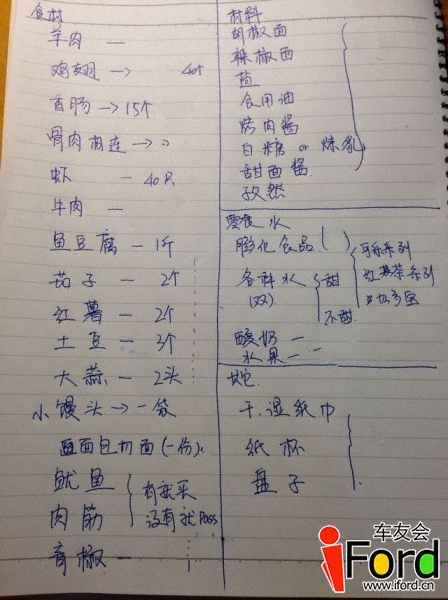 食材
羊肉 —
鸡翅 —> 40个
香肠 —> 15个
骨肉相连 —>
虾 — 40只
牛肉 —
鱼豆腐 — 1斤
茄子 — 2个
红薯 — 2个
土豆 — 3个
大蒜 — 2头
小馒头 —> 一袋
面包切面(一份)
鱿鱼
肉筋
有就买
没有就pass
青椒 —
材料
胡椒面
辣椒面
盐
食用油
烤肉酱
白糖 or 炼乳
甜面酱
孜然
零食.水
膨化食品( )
各种水
(双)
甜
不甜
可乐系列
红茶系列
酸奶 —
水果 —
其它
干.湿纸巾
纸杯
盘子
车友会
iFord
www.iford.cn